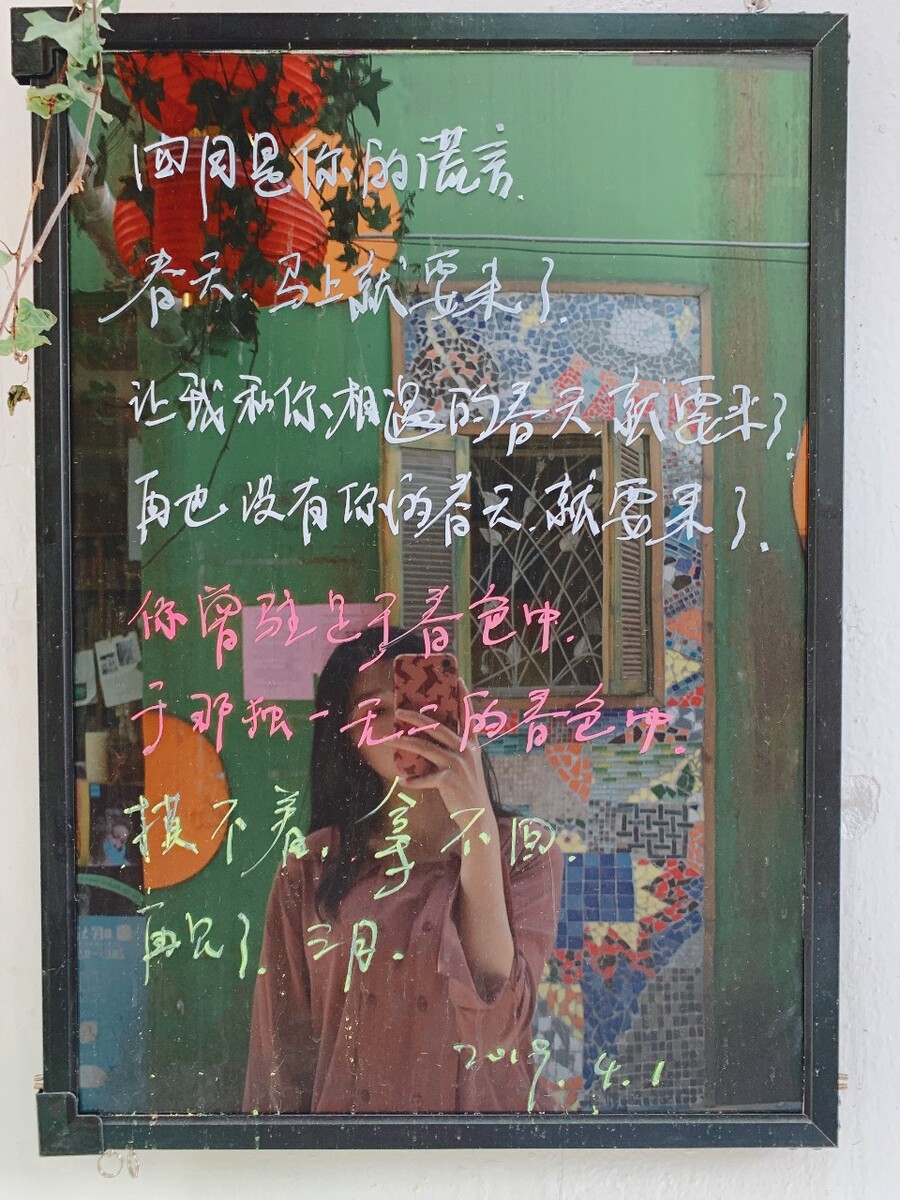 四月是你的谎言.
春天.马上就要来了.
让我和你相遇的春天.就要来了.
再也没有你的春天.就要来了.
你曾驻足于春色中.
于那独一无二的春色中.
摸不着.拿不回.
再见了.三月.
2019.4.1